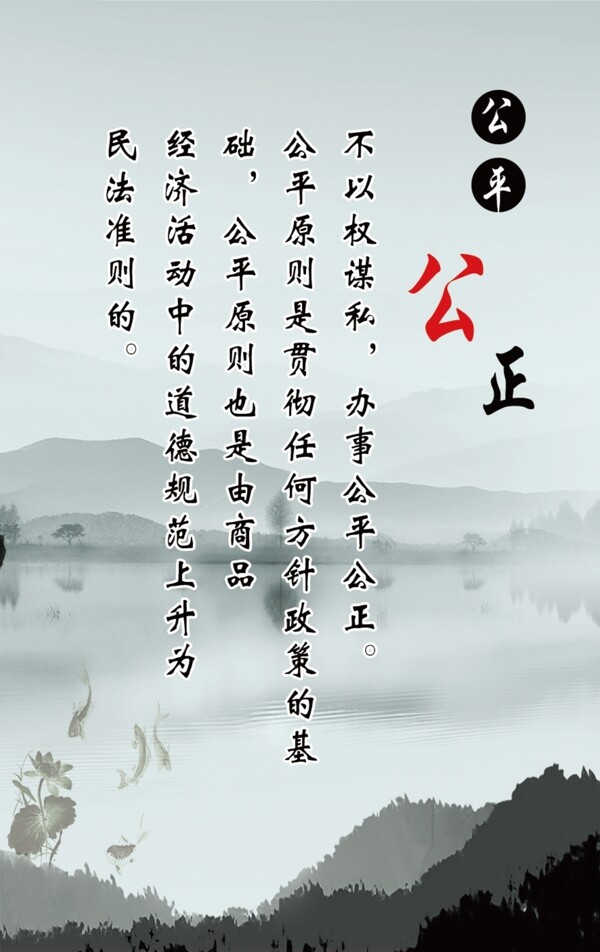 公平
公正
不以权谋私，办事公平公正。
公平原则是贯彻任何方针政策的基
础，公平原则也是由商品
经济活动中的道德规范上升为
民法准则的。